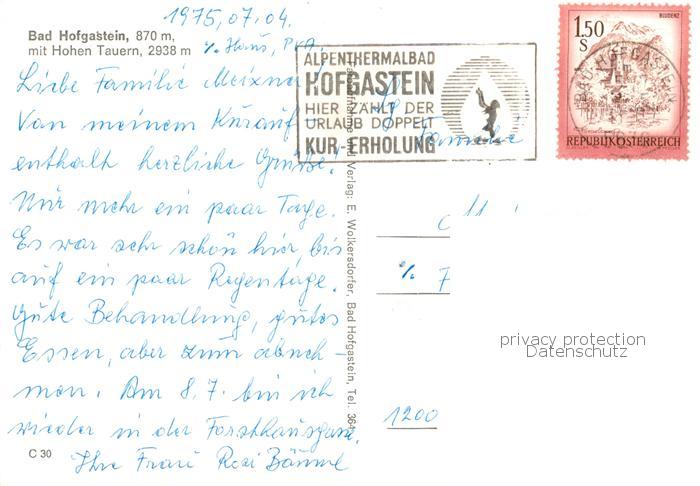 1975,07.04.
Bad Hofgastein, 870 m,
mit Hohen Tauern, 2938 m
℅ Haus,
Liebe Familie Meixner
Von meinem Kurauf
enthalt herzliche Grüße.
Nur mehr ein paar Tage.
Es war sehr schön hier, bis
auf ein paar Regentage.
Gute Behandlung, gutes
Essen, aber zum abneh-
men. Am 8.7. bin ich
wieder in der Forsthausgasse.
Ihre Frau Rosi Bäuml
C 30
ALPENTHERMALBAD
HOFGASTEIN
HIER ZÄHLT DER
URLAUB DOPPELT
KUR-ERHOLUNG
BLUDENZ
1.50
S
REPUBLIK ÖSTERREICH
BAD HOFGASTEIN
Familie
Verlag: E. Wolkersdorfer, Bad Hofgastein, Tel. 364
℅ 7
1200
privacy protection
Datenschutz